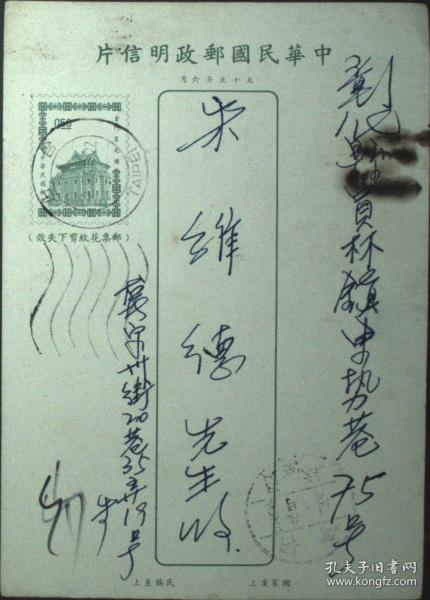 中華民國郵政明信片
五十五年六月
彰化縣員林鎮中势巷75号
朱維德先生收
0.50
TAIPEI
(郵票花紋剪下失效)
州街20巷35弄19号
朱
國家至上
民族至上
孔夫子旧书网
www.kongfz.com